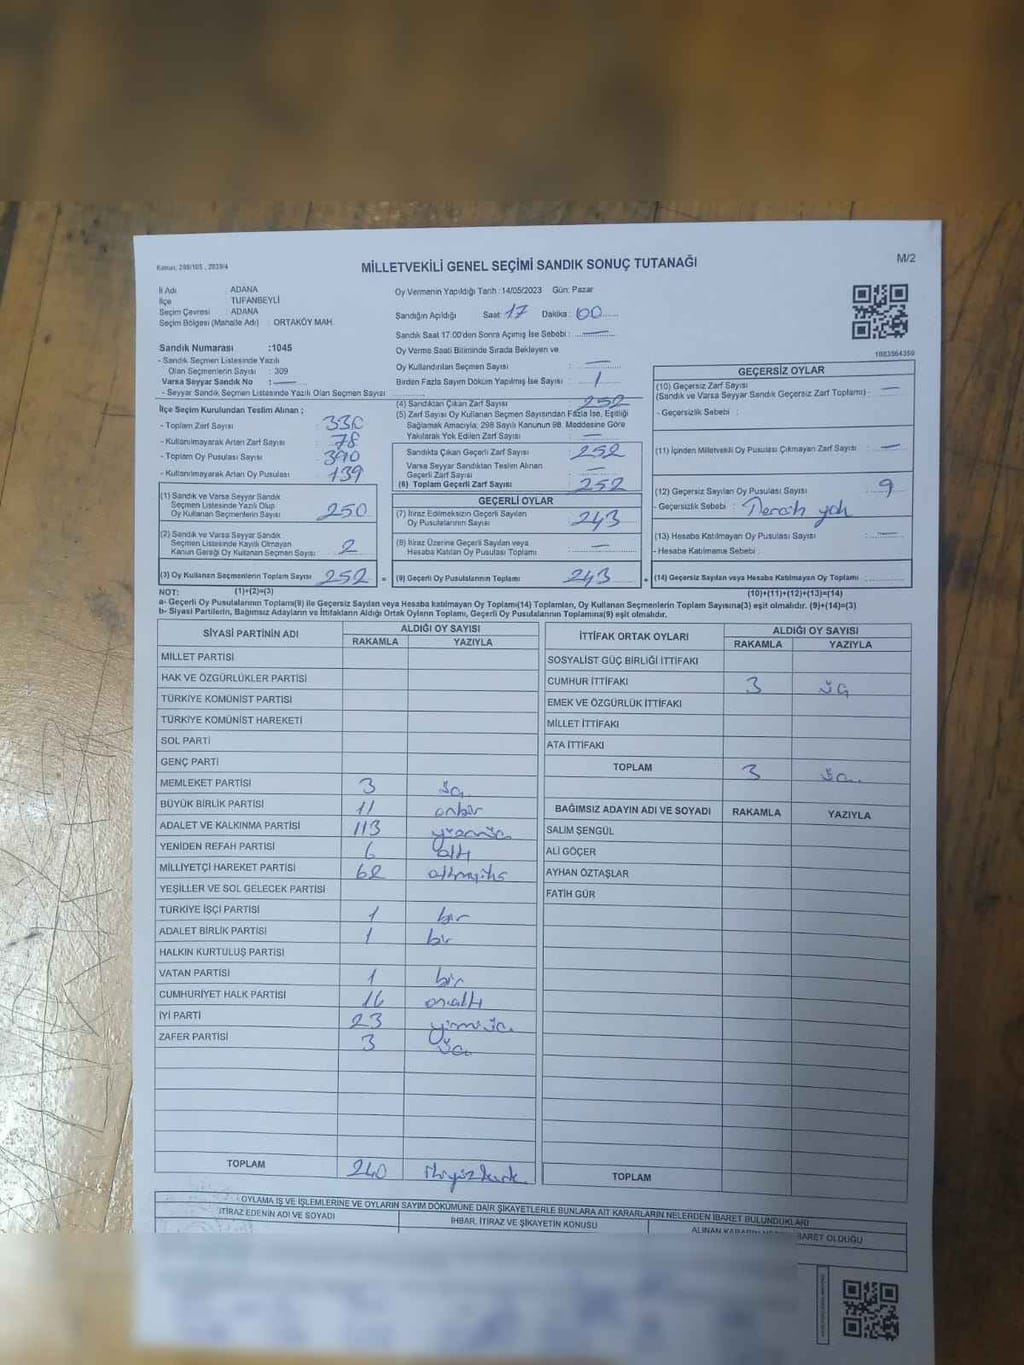 Kanun: 298/105 , 2839/4
MİLLETVEKİLİ GENEL SEÇİMİ SANDIK SONUÇ TUTANAĞI
M/2
İl Adı ADANA
İlçe TUFANBEYLİ
Seçim Çevresi ADANA
Seçim Bölgesi (Mahalle Adı) : ORTAKÖY MAH.
Oy Vermenin Yapıldığı Tarih : 14/05/2023 Gün: Pazar
Sandığın Açıldığı Saat: 17 Dakika : 00
Sandık Saat 17:00'den Sonra Açımış İse Sebebi :
Oy Verme Saati Bitiminde Sırada Bekleyen ve
Oy Kullandırılan Seçmen Sayısı :
Birden Fazla Sayım Döküm Yapılmış İse Sayısı : 1
1083564359
Sandık Numarası :1045
- Sandık Seçmen Listesinde Yazılı
Olan Seçmenlerin Sayısı : 309
Varsa Seyyar Sandık No :
- Seyyar Sandık Seçmen Listesinde Yazılı Olan Seçmen Sayısı
İlçe Seçim Kurulundan Teslim Alınan ;
- Toplam Zarf Sayısı : 330
- Kullanılmayarak Artan Zarf Sayısı : 78
- Toplam Oy Pusulası Sayısı : 390
- Kullanılmayarak Artan Oy Pusulası : 139
(1) Sandık ve Varsa Seyyar Sandık
Seçmen Listesinde Yazılı Olup
Oy Kullanan Seçmenlerin Sayısı : 250
(2) Sandık ve Varsa Seyyar Sandık
Seçmen Listesinde Kayıtlı Olmayan
Kanun Gereği Oy Kullanan Seçmen Sayısı : 2
(3) Oy Kullanan Seçmenlerin Toplam Sayısı : 252
(4) Sandıktan Çıkan Zarf Sayısı : 252
(5) Zarf Sayısı Oy Kullanan Seçmen Sayısından Fazla İse, Eşitliği
Sağlamak Amacıyla; 298 Sayılı Kanunun 98. Maddesine Göre
Yakılarak Yok Edilen Zarf Sayısı :
Sandıkta Çıkan Geçerli Zarf Sayısı : 252
Varsa Seyyar Sandıktan Teslim Alınan
Geçerli Zarf Sayısı :
(6) Toplam Geçerli Zarf Sayısı : 252
GEÇERLİ OYLAR
(7) İtiraz Edilmeksizin Geçerli Sayılan
Oy Pusulalarının Sayısı : 243
(8) İtiraz Üzerine Geçerli Sayılan veya
Hesaba Katılan Oy Pusulası Toplamı :
(9) Geçerli Oy Pusulalarının Toplamı : 243
GEÇERSİZ OYLAR
(10) Geçersiz Zarf Sayısı
(Sandık ve Varsa Seyyar Sandık Geçersiz Zarf Toplamı) :
- Geçersizlik Sebebi :
(11) İçinden Milletvekili Oy Pusulası Çıkmayan Zarf Sayısı :
(12) Geçersiz Sayılan Oy Pusulası Sayısı : 9
- Geçersizlik Sebebi : Tercih yok
(13) Hesaba Katılmayan Oy Pusulası Sayısı :
- Hesaba Katılmama Sebebi :
(14) Geçersiz Sayılan veya Hesaba Katılmayan Oy Toplamı :
NOT: (1)+(2)=(3) (10)+(11)+(12)+(13)=(14)
a- Geçerli Oy Pusulalarının Toplamı(9) ile Geçersiz Sayılan veya Hesaba Katılmayan Oy Toplamı(14) Toplamları, Oy Kullanan Seçmenlerin Toplam Sayısına(3) eşit olmalıdır. (9)+(14)=(3)
b- Siyasi Partilerin, Bağımsız Adayların ve İttifakların Aldığı Ortak Oyların Toplamı, Geçerli Oy Pusulalarının Toplamına(9) eşit olmalıdır.
SİYASİ PARTİNİN ADI ALDIĞI OY SAYISI
RAKAMLA YAZIYLA
MİLLET PARTİSİ
HAK VE ÖZGÜRLÜKLER PARTİSİ
TÜRKİYE KOMÜNİST PARTİSİ
TÜRKİYE KOMÜNİST HAREKETİ
SOL PARTİ
GENÇ PARTİ
MEMLEKET PARTİSİ 3 üç
BÜYÜK BİRLİK PARTİSİ 11 onbir
ADALET VE KALKINMA PARTİSİ 113
YENİDEN REFAH PARTİSİ 6 altı
MİLLİYETÇİ HAREKET PARTİSİ 62 altmışiki
YEŞİLLER VE SOL GELECEK PARTİSİ
TÜRKİYE İŞÇİ PARTİSİ 1 bir
ADALET BİRLİK PARTİSİ 1 bir
HALKIN KURTULUŞ PARTİSİ
VATAN PARTİSİ 1 bir
CUMHURİYET HALK PARTİSİ 16 onaltı
İYİ PARTİ 23 yirmiüç
ZAFER PARTİSİ 3 üç
TOPLAM 240 ikiyüzkırk
İTTİFAK ORTAK OYLARI ALDIĞI OY SAYISI
RAKAMLA YAZIYLA
SOSYALİST GÜÇ BİRLİĞİ İTTİFAKI
CUMHUR İTTİFAKI 3 üç
EMEK VE ÖZGÜRLÜK İTTİFAKI
MİLLET İTTİFAKI
ATA İTTİFAKI
TOPLAM 3 üç
BAĞIMSIZ ADAYIN ADI VE SOYADI RAKAMLA YAZIYLA
SALİM ŞENGÜL
ALİ GÖÇER
AYHAN ÖZTAŞLAR
FATİH GÜR
TOPLAM
OYLAMA İŞ VE İŞLEMLERİNE VE OYLARIN SAYIM DÖKÜMÜNE DAİR ŞİKAYETLERLE BUNLARA AİT KARARLARIN NELERDEN İBARET BULUNDUKLARI
İTİRAZ EDENİN ADI VE SOYADI İHBAR, İTİRAZ VE ŞİKAYETİN KONUSU